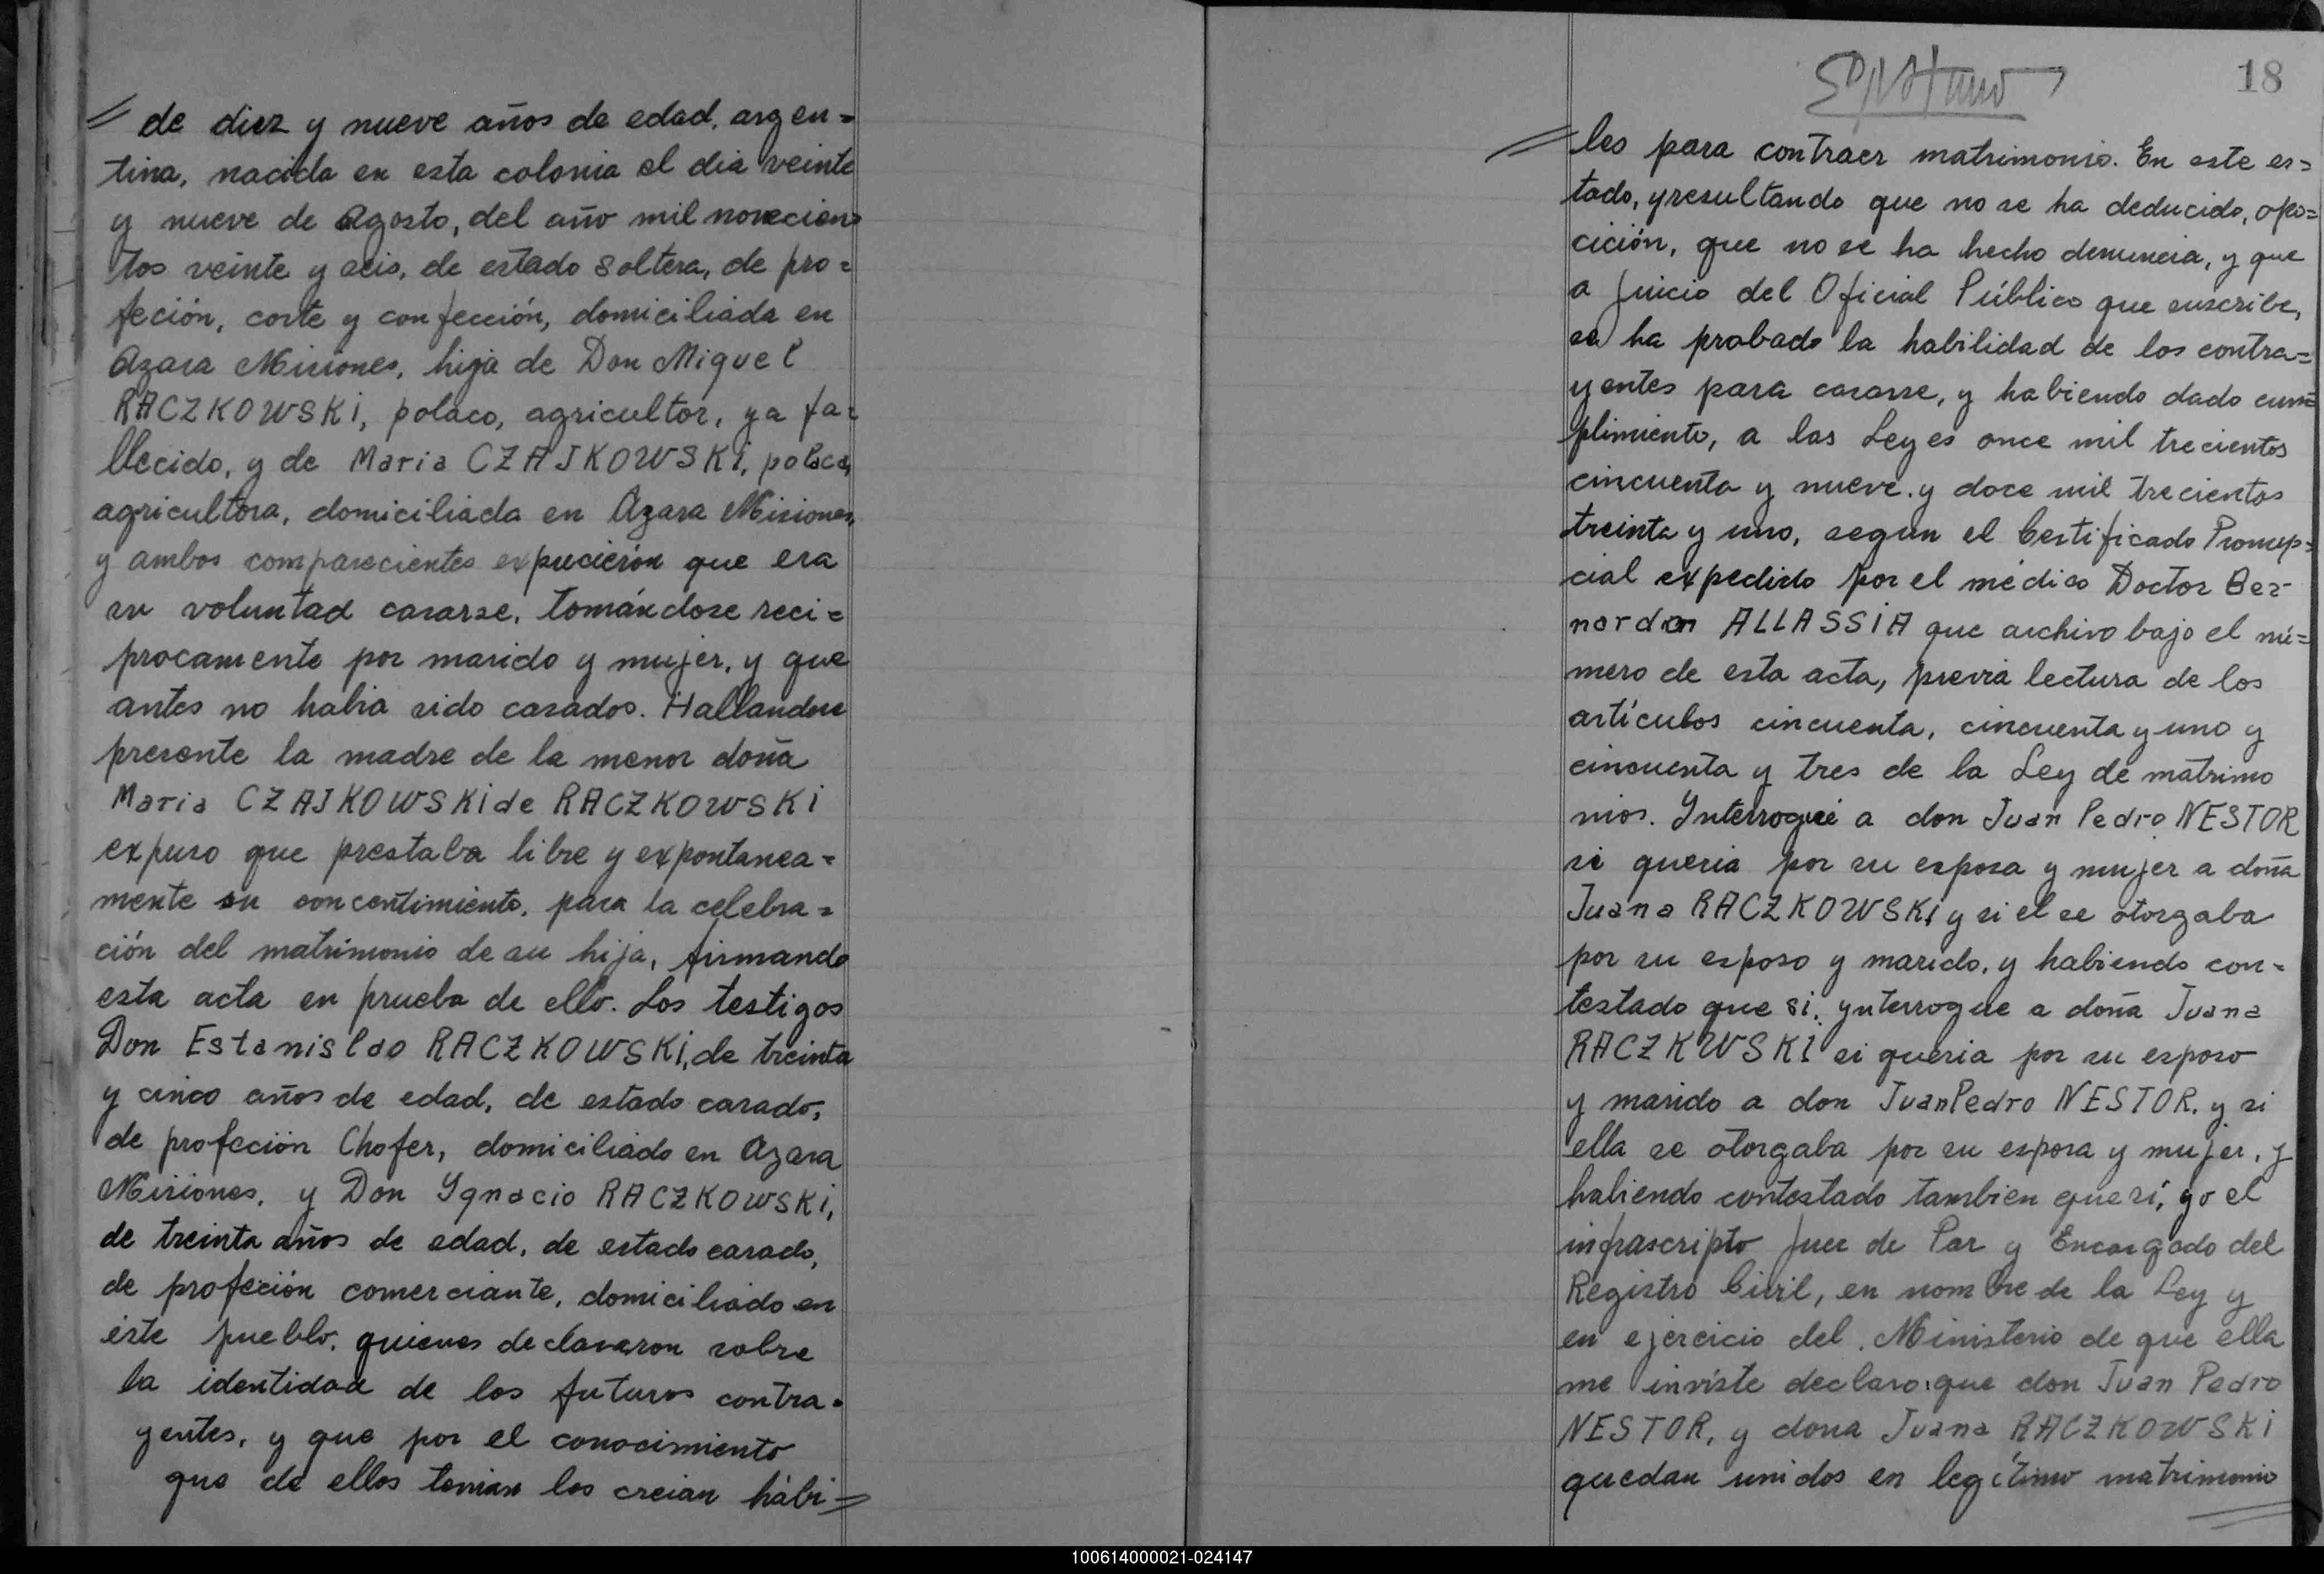 de diez y nueve años de edad, argen=
tina, nacida en esta colonia el dia veinte
y nueve de Agosto, del año mil novecien
tos veinte y seis, de estado soltera, de pro=
feción, corte y confección, domiciliada en
Azara Misiones, hija de Don Miguel
RACZKOWSKI, polaco, agricultor, ya fa=
llecido, y de Maria CZAJKOWSKI, polaca,
agricultora, domiciliada en Azara Misiones,
y ambos comparecientes expucierón que era
su voluntad casarse, tomándose reci=
procamente por marido y mujer, y que
antes no habia sido casados. Hallandose
presente la madre de la menor doña
Maria CZAJKOWSKI de RACZKOWSKI
expuso que prestaba libre y expontanea=
mente su concentimiento, para la celebra=
ción del matrimonio de su hija, firmando
esta acta en prueba de ello. Los testigos
Don Estanislao RACZKOWSKI, de treinta
y cinco años de edad, de estado casado,
de profeción Chofer, domiciliado en Azara
Misiones, y Don Ygnacio RACZKOWSKI,
de treinta años de edad, de estado casado,
de profeción comerciante, domiciliado en
éste pueblo, quienes declararon sobre
la identidad de los futuros contra=
yentes, y que por el conocimiento
que de ellos tenian los creian hábi=
18
les para contraer matrimonio. En este es=
tado, y resultando que no se ha deducido, opo=
cición, que no se ha hecho denuncia, y que
a juicio del Oficial Público que suscribe,
se ha probado la habilidad de los contra=
yentes para casarse, y habiendo dado cum=
plimiento, a las Leyes once mil trecientos
cincuenta y nueve, y doce mil trecientos
treinta y uno, segun el Certificado Pronup=
cial expedido por el médico Doctor Ber-
nardon ALLASSIA que archivo bajo el nú=
mero de esta acta, previa lectura de los
artículos cincuenta, cincuenta y uno y
cincuenta y tres de la Ley de matrimo
nios. Ynterrogué a don Juan Pedro NESTOR
si queria por su esposa y mujer a doña
Juana RACZKOWSKI y si el se otorgaba
por su esposo y marido, y habiendo con=
testado que si, ynterrogue a doña Juana
RACZKWSKI si queria por su esposo
y marido a don Juan Pedro NESTOR, y si
ella se otorgaba por su esposa y mujer, y
habiendo contestado tambien que sí, yo el
infrascripto Juez de Paz y Encargado del
Registro Civil, en nombre de la Ley y
en ejercicio del Ministerio de que ella
me inviste declaro: que don Juan Pedro
NESTOR, y dona Juana RACZKOWSKI
quedan unidos en legítimo matrimonio
100614000021-024147